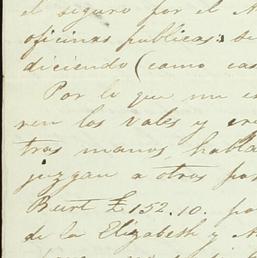 el seguro por el A
oficinas publicas; se
diciendo (como cas
Por lo que me es
ren los Vales y cre
tras manos, habla
juzgan a otros po
Burt £152.10. po
de la Elizabeth y A